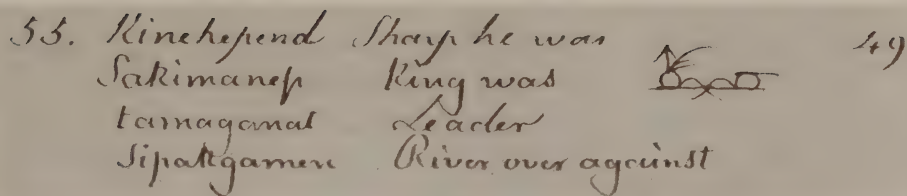 55. Kinehepend Sharp he was 49
Sakimanep King was
tamaganat Leader
Sipakgamen River over against